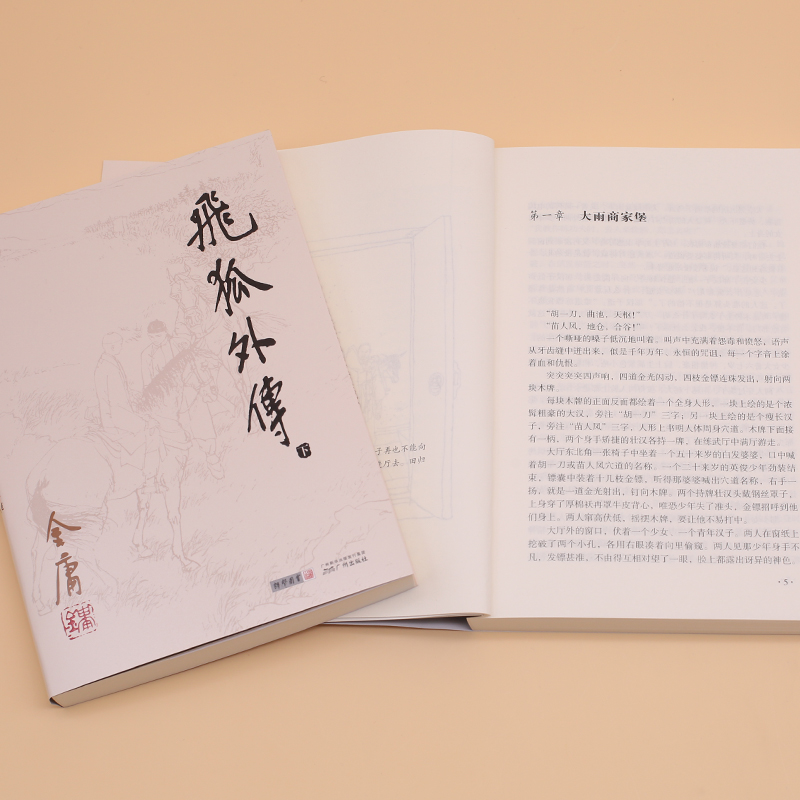 飛狐外傳
下
金庸
朗聲圖書
广州出版社
子弄也不能向
第一章 大雨商家堡
“胡一刀，曲池，天枢！”
“苗人凤，地仓，合谷！”
一个嘶哑的嗓子低沉地叫着。叫声中充满着怨毒和愤怒，语声
从牙齿缝中迸出来，似是千年万年，永恒的咒诅，每一个字音上涂
着血和仇恨。
突突突突四声响，四道金光闪动，四枝金镖连珠发出，射向两
块木牌。
每块木牌的正面反面都绘着一个全身人形，一块上绘的是个浓
髯粗豪的大汉，旁注“胡一刀”三字；另一块上绘的是个瘦长汉
子，旁注“苗人凤”三字，人形上书明人体周身穴道。木牌下面接
有一柄，两个身手矫捷的壮汉各持一牌，在练武厅中满厅游走。
大厅东北角一张椅子中坐着一个五十来岁的白发婆婆，口中喊
着胡一刀或苗人凤穴道的名称。一个二十来岁的英俊少年劲装结
束，镖囊中装着十几枝金镖，听得那婆婆喊出穴道名称，右手一
扬，就是一道金光射出，钉向木牌。两个持牌壮汉头戴钢丝罩子，
上身穿了厚棉袄再罩牛皮背心，唯恐少年失了准头，金镖招呼到他
们身上。两人窜高伏低，摇摆木牌，要让他不易打中。
大厅外的窗口，伏着一个少女、一个青年汉子。两人在窗纸上
挖破了两个小孔，各用右眼凑着向里偷窥。两人见那少年身手不
凡，发镖甚准，不由得互相对望了一眼，脸上都露出讶异的神色。
·5·